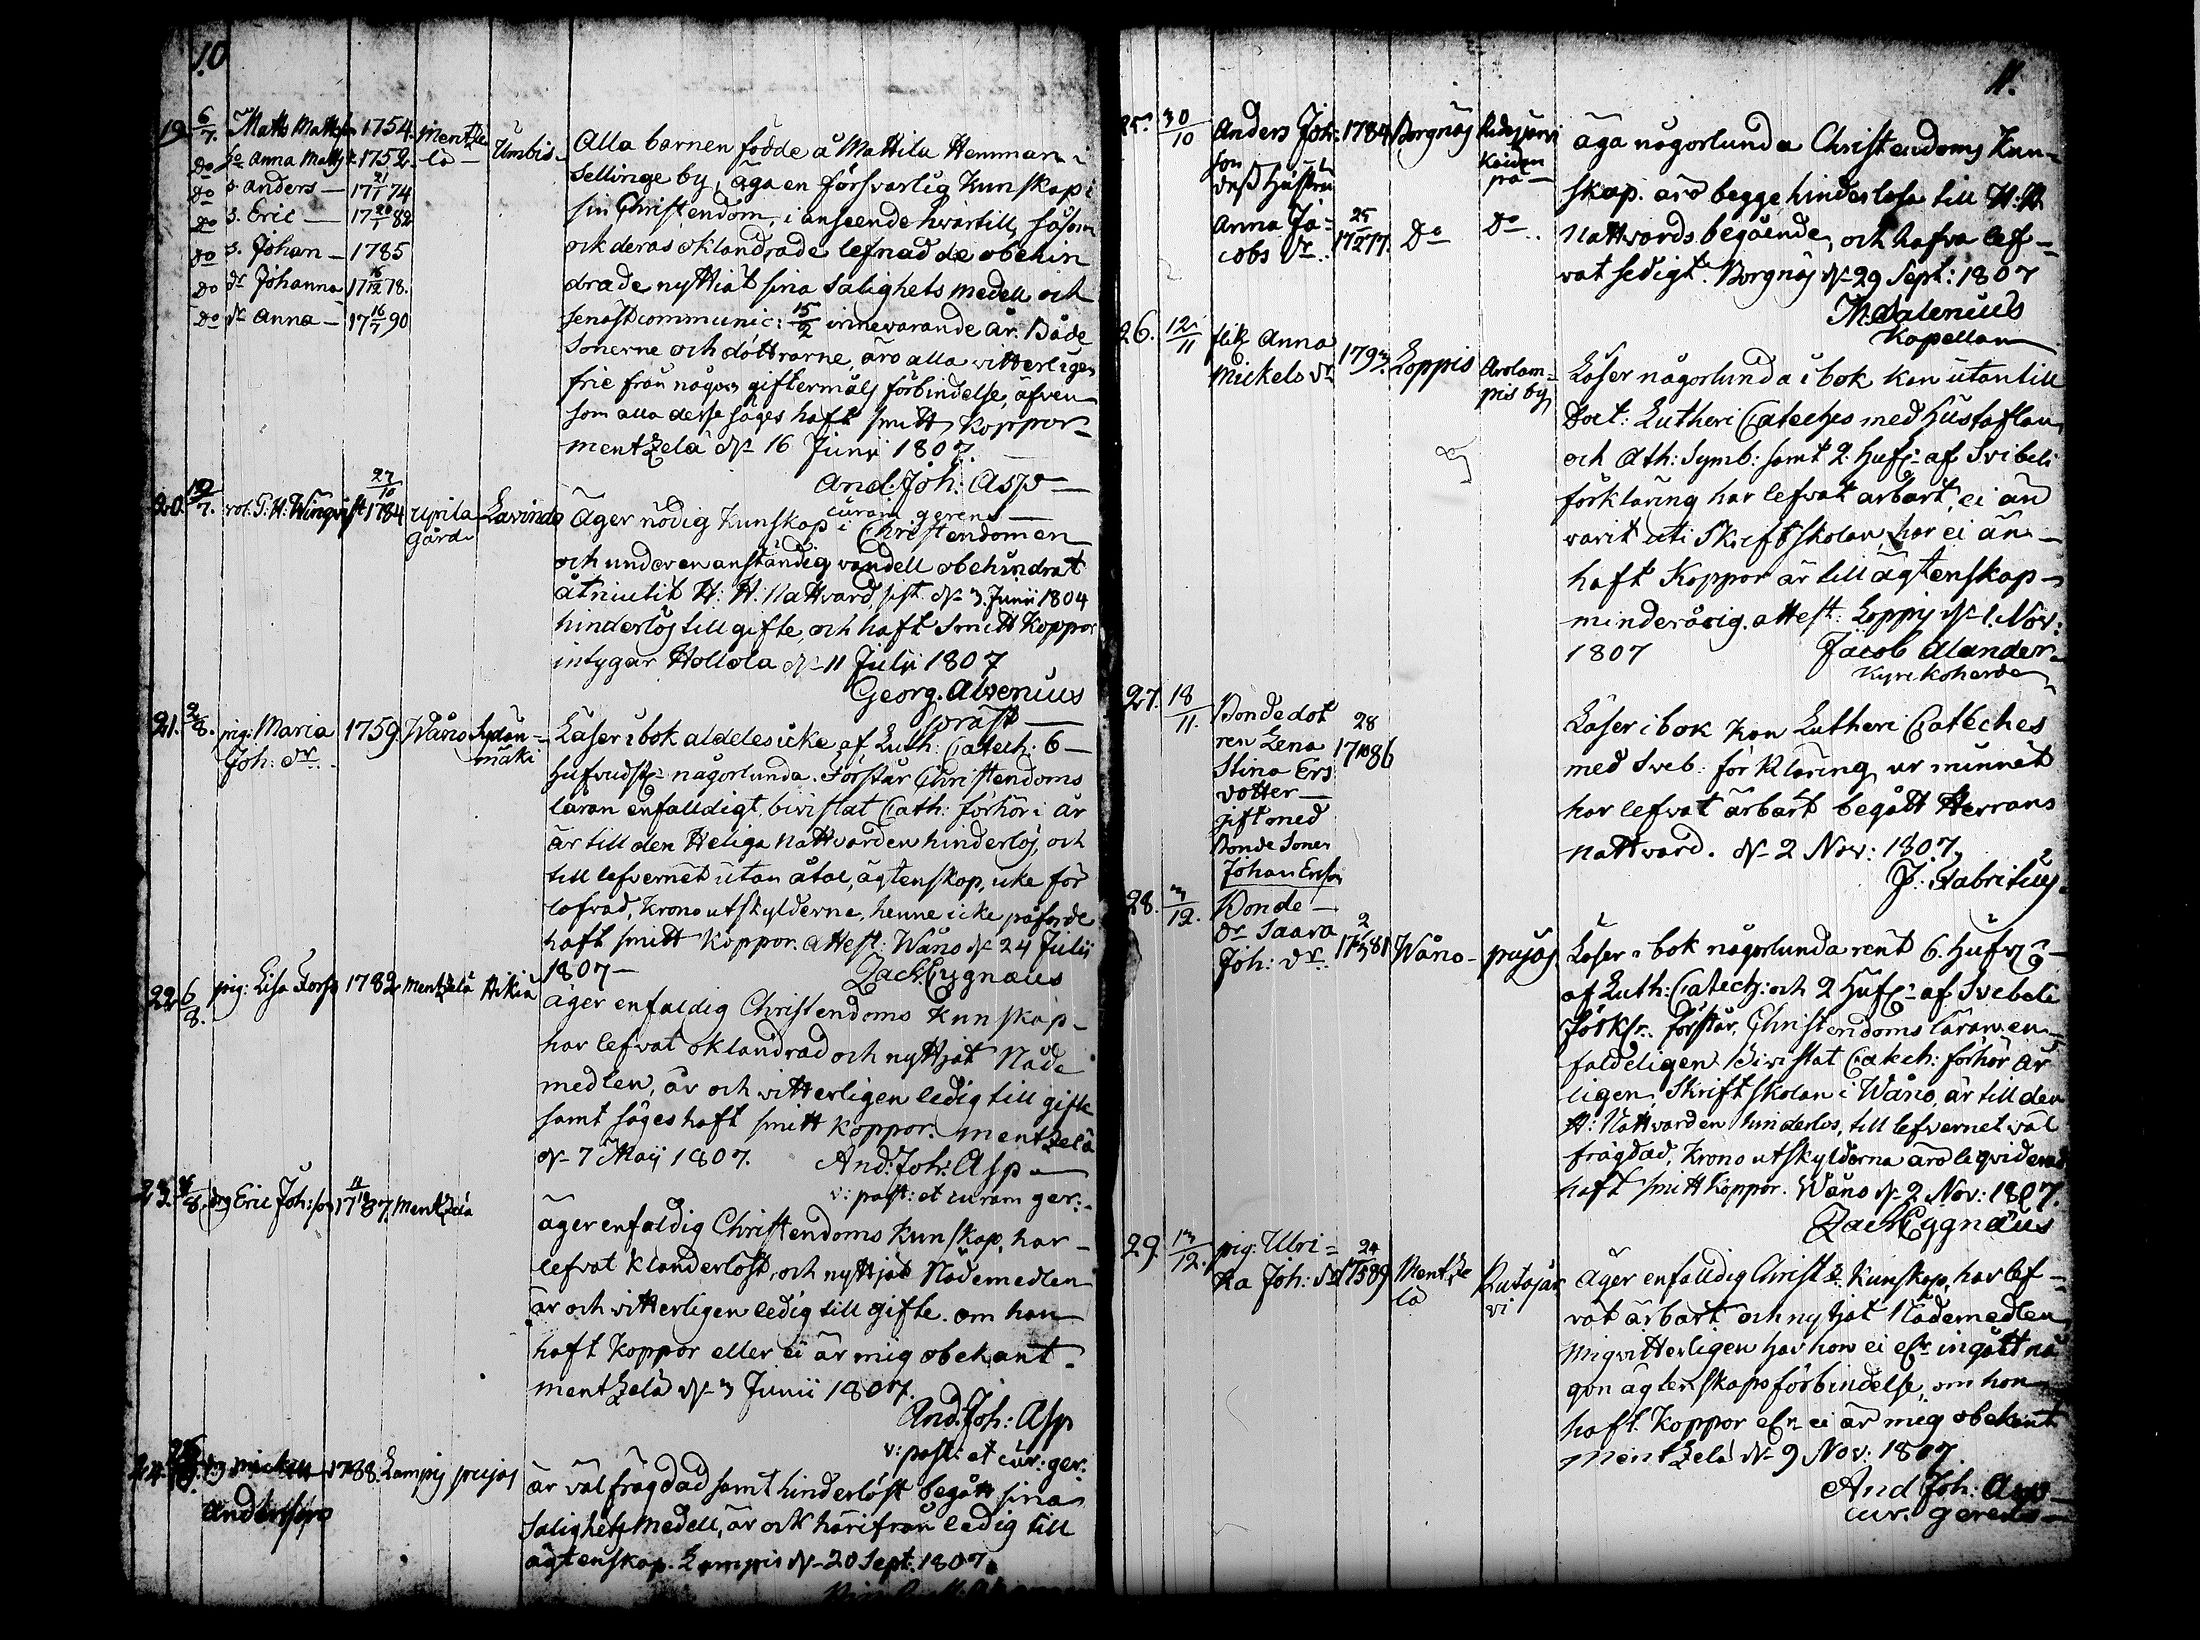 10
19. 6/7. Matts Matts son 1754. Mentze
Do ho Anna Matts dr 1752. lä – Umbis –
Do s. Anders – 17 21/1 74
Do s. Eric – 17 20/1 82
Do s. Johan – 1785
Do dr Johanna 17 16/12 78.
Do dr Anna – 17 16/7 90
Alla barnen födde å Mattila Hemman i
Sellinge by, äga en försvarlig Kunskap i
sin Christendom, i anseende hvartill, såsom
ock deras oklandrade lefnad de obehin
drade nyttiat sina Salighets medell och
senast communic: 15/2 innevarande år. Både
Sönerne och döttrarne, äro alla witterligen
frie från någon giftermåls förbindelse, äfven
som alla desse säges haft smitt Koppor –
Mentzelä dn 16 Junii 1807.
And: Joh: Asp –
curam gerens –
20. 12/7. rot. T. H. Wingvist 27/10 1784 Uprila Lavindo
gård.
Äger nödig Kunskap i Christendomen
och under en anständig vandell obehindrat
åtniutit H: H. Nattvard sist dn 3. Junii 1804
hinderlös till gifte, och haft Smitt Koppor
intygar Hollola dn 11 Julii 1807
Georg. Alvenius
präst –
21. 2/8. pig: Maria 1759. Wånå Sydän –
Joh: dr. mäki
Läser i bok aldeles icke, af Luth: Catech: 6 –
Hufvudst: någorlunda. Förstår Christendoms
läran enfalldigt, bivistat Cath: förhör i år
är till den Heliga Nattvarden hinderlös, och
till lefvernet utan åtal, ägtenskap, icke för
lofvad, Krono utskylderne, henne icke påförde
haft smitt Koppor. Attest: Wånå dn 24 Julii
1807 – Zach: Cygnæus
22. 6/8. pig: Lisa Forss 1782 Mentzelä Hikiä
äger enfaldig Christendoms Kunskap –
har lefvat oklandrad och nyttjat Nåde
medlen, är och witterligen ledig till gifte
samt säges haft smitt Koppor. Mentzelä
dn 7 Maij 1807. And: Joh: Asp –
v: past: et curam ger: –
23. /8. drg Eric Joh: son 17 11/12 87. Mentzelä
äger enfaldig Christendoms Kunskap, har –
lefvat Klanderlöst, och nyttjat Nådemedlen
är och witterligen ledig till gifte. om han
haft Koppor eller ei är mig obekant –
Mentzelä dn 3 Junii 1807.
And: Joh: Asp
v: past: et cur: ger:
24. 1788. Lampis pusas
Andersson
är väl frägdad samt hinderlöst begått sina
Salighets Medell, är ock härifrån ledig till
ägtenskap. Lampis dn 20 Sept: 1807.
11.
25. 30/10 Anders Joh: 1784 Borgnäs
son
dess Hustru
Anna Ja= 25
cobs dr. 17 12 77. Do Do.
äga någorlunda Christendoms Kun=
skap. äro begge hinderlösa till H: H.
Nattvards begående, och hafva lef –
vat sedigt. Borgnäs dn 29 Sept: 1807
M. Salenius
Kapellan
26. 12/11 flik Anna
Mickels dr 1793. Loppis Arolam=
pis by
Läser någorlunda i bok kan utantill
Doct: Lutheri Cateches med Hustaflan,
och Ath: Symb: samt 2 Hufs: af Svibeli
förklaring har lefvat ärbart, ei än
varit uti Skriftskolan, har ei än –
haft Koppor är till ägtenskap –
minderårig. attest: Loppis dn 1. Nov:
1807 Jacob Alander
Kyrckoherde
27. 18/11. Bondedot
ren Lena 28
Stina Ers 17 10 86
dotter –
gift med
Bonde Sonen
Johan Ersson
Läser i bok kan Lutheri Cateches
med Sveb: förklaring ur minnet
har lefvat ärbart begått Herrans
nattvard. dn 2 Nov: 1807.
J. Fabritius.
28. 3/12. Bonde –
dr Saara 2
Joh: dr. 17 81 Wånå – pusas
Läser i bok någorlunda rent 6. Hufvs:
af Luth: Catech: och 2 Hufs: af Svebeli
förkl:r förstår Christendoms läran en=
faldeligen Bivistat Catech: förhör år
ligen, Skriftskolan i Wånå, är till den
H: Nattvarden hinderlös, till lefvernet väl
frägdad, Krono utskylderna äro liqviderade
haft smitt Koppor. Wånå dn 2 Nov: 1807.
Zach: Cygnæus
29. 13/12. pig: Ulri= 24
ka Joh: dr 17 5 89 Mentze Rutajär
lä vi
Äger enfalldig Christ: s. Kunskap, har lef –
vat ärbart och nytjat Nådemedlen
Mig vitterligen har hon ei elr ingått nå
gon ägtenskaps förbindelse, om hon
haft Koppor elr ei är mig obekant
Mentzelä dn 9 Nov: 1807.
And Joh: Asp –
cur. gerens –